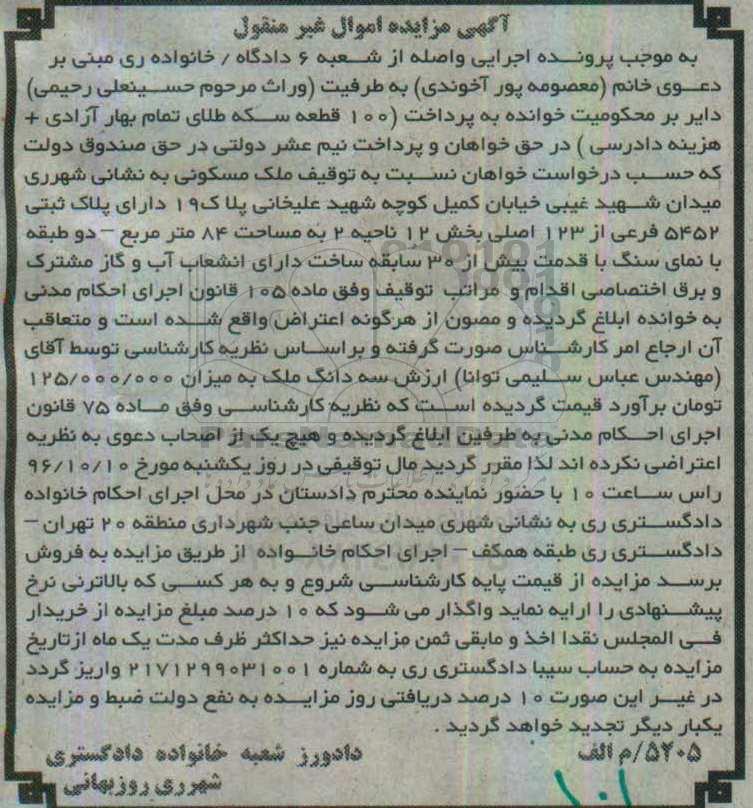 آگهی مزایده اموال غیر منقول
به موجب پرونده اجرایی واصله از شعبه ۶ دادگاه / خانواده ری مبنی بر
دعوی خانم (معصومه پور آخوندی) به طرفیت (وراث مرحوم حسینعلی رحیمی)
دایر بر محکومیت خوانده به پرداخت (۱۰۰ قطعه سکه طلای تمام بهار آزادی +
هزینه دادرسی ) در حق خواهان و پرداخت نیم عشر دولتی در حق صندوق دولت
که حسب درخواست خواهان نسبت به توقیف ملک مسکونی به نشانی شهرری
میدان شهید غیبی خیابان کمیل کوچه شهید علیخانی پلا ک۱۹ دارای پلاک ثبتی
۵۴۵۲ فرعی از ۱۲۳ اصلی بخش ۱۲ ناحیه ۲ به مساحت ۸۴ متر مربع – دو طبقه
با نمای سنگ با قدمت بیش از ۳۰ سابقه ساخت دارای انشعاب آب و گاز مشترک
و برق اختصاصی اقدام و مراتب توقیف وفق ماده ۱۰۵ قانون اجرای احکام مدنی
به خوانده ابلاغ گردیده و مصون از هرگونه اعتراض واقع شده است و متعاقب
آن ارجاع امر کارشناس صورت گرفته و براساس نظریه کارشناسی توسط آقای
(مهندس عباس سلیمی توانا) ارزش سه دانگ ملک به میزان ۱۲۵/۰۰۰/۰۰۰
تومان برآورد قیمت گردیده است که نظریه کارشناسی وفق ماده ۷۵ قانون
اجرای احکام مدنی به طرفین ابلاغ گردیده و هیچ یک از اصحاب دعوی به نظریه
اعتراضی نکرده اند لذا مقرر گردید مال توقیفی در روز یکشنبه مورخ ۹۶/۱۰/۱۰
راس ساعت ۱۰ با حضور نماینده محترم دادستان در محل اجرای احکام خانواده
دادگستری ری به نشانی شهری میدان ساعی جنب شهرداری منطقه ۲۰ تهران –
دادگستری ری طبقه همکف – اجرای احکام خانواده از طریق مزایده به فروش
برسد مزایده از قیمت پایه کارشناسی شروع و به هر کسی که بالاترنی نرخ
پیشنهادی را ارایه نماید واگذار می شود که ۱۰ درصد مبلغ مزایده از خریدار
فی المجلس نقدا اخذ و مابقی ثمن مزایده نیز حداکثر ظرف مدت یک ماه ازتاریخ
مزایده به حساب سیبا دادگستری ری به شماره ۲۱۷۱۲۹۹۰۳۱۰۰۱ واریز گردد
در غیر این صورت ۱۰ درصد دریافتی روز مزایده به نفع دولت ضبط و مزایده
یکبار دیگر تجدید خواهد گردید .
۵۲۰۵/م الف
دادورز شعبه خانواده دادگستری
شهرری روزبهانی
۱۰۱